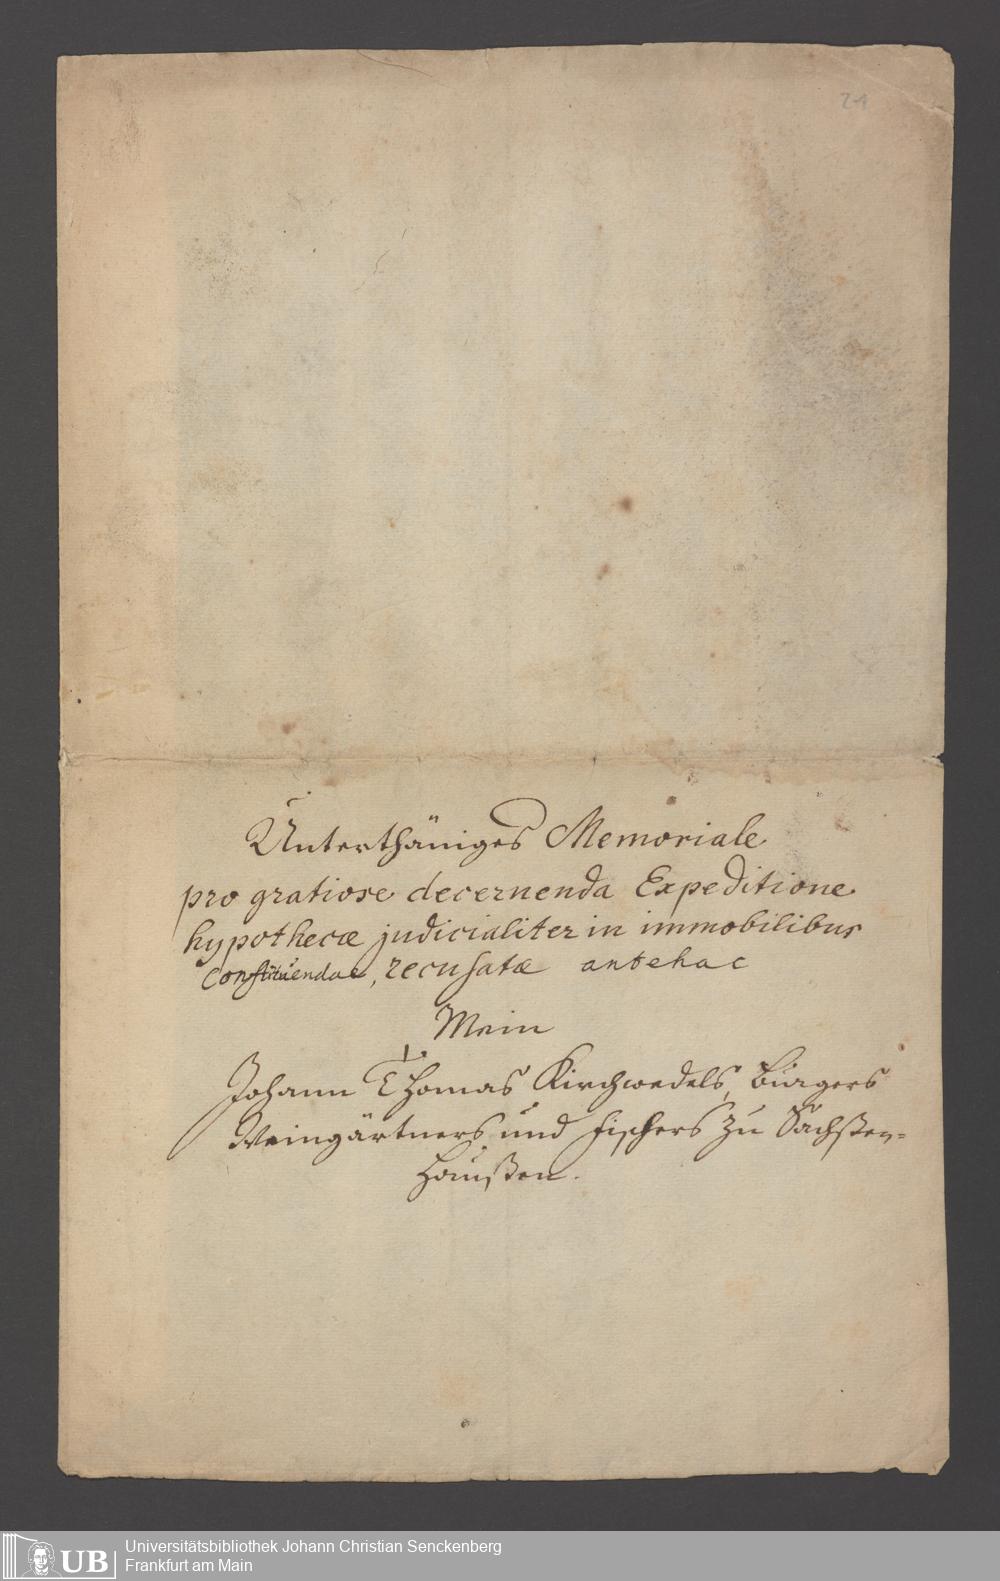 21
Unterthäniges Memoriale
pro gratiose decernenda Expeditione
hypothecæ judicialiter in immobilibus
Constituendae, recusatæ antehac
Mein
Johann Thomas Kirchwedels, Burgers
Weingärtners und Fischers zu Sachßen-
haußen.
UB
Universitätsbibliothek Johann Christian Senckenberg
Frankfurt am Main